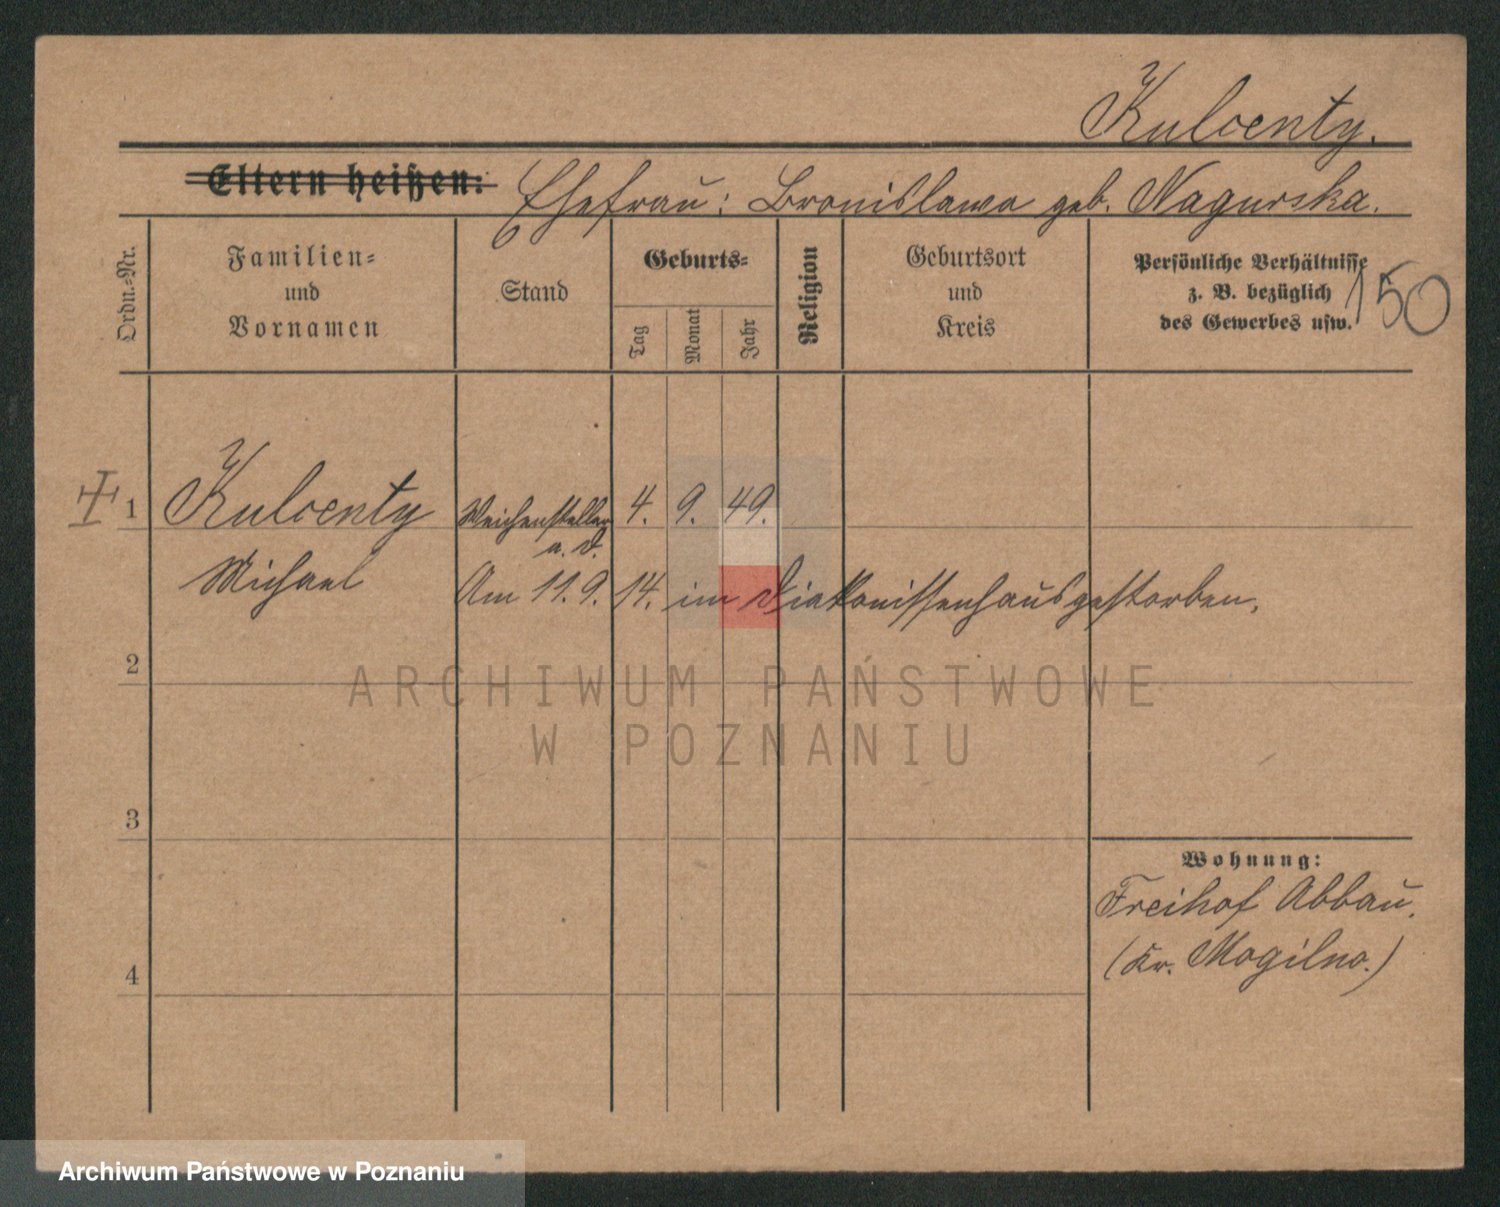 Kulcenty.
Eltern heißen: Ehefrau: Bronislawa geb. Nagurska.
Ordn.-Nr.
Familien-
und
Vornamen
Stand
Geburts-
Tag
Monat
Jahr
Religion
Geburtsort
und
Kreis
Persönliche Verhältnisse
z. B. bezüglich
des Gewerbes usw.
150
1 Kulcenty Weichensteller 4. 9. 49.
a. D.
Michael Am 11. 9. 14. im Diakonissenhaus gestorben.
2
ARCHIWUM PAŃSTWOWE
W POZNANIU
3
Wohnung:
Freihof Abbau.
(Kr. Mogilno.)
4
Archiwum Państwowe w Poznaniu